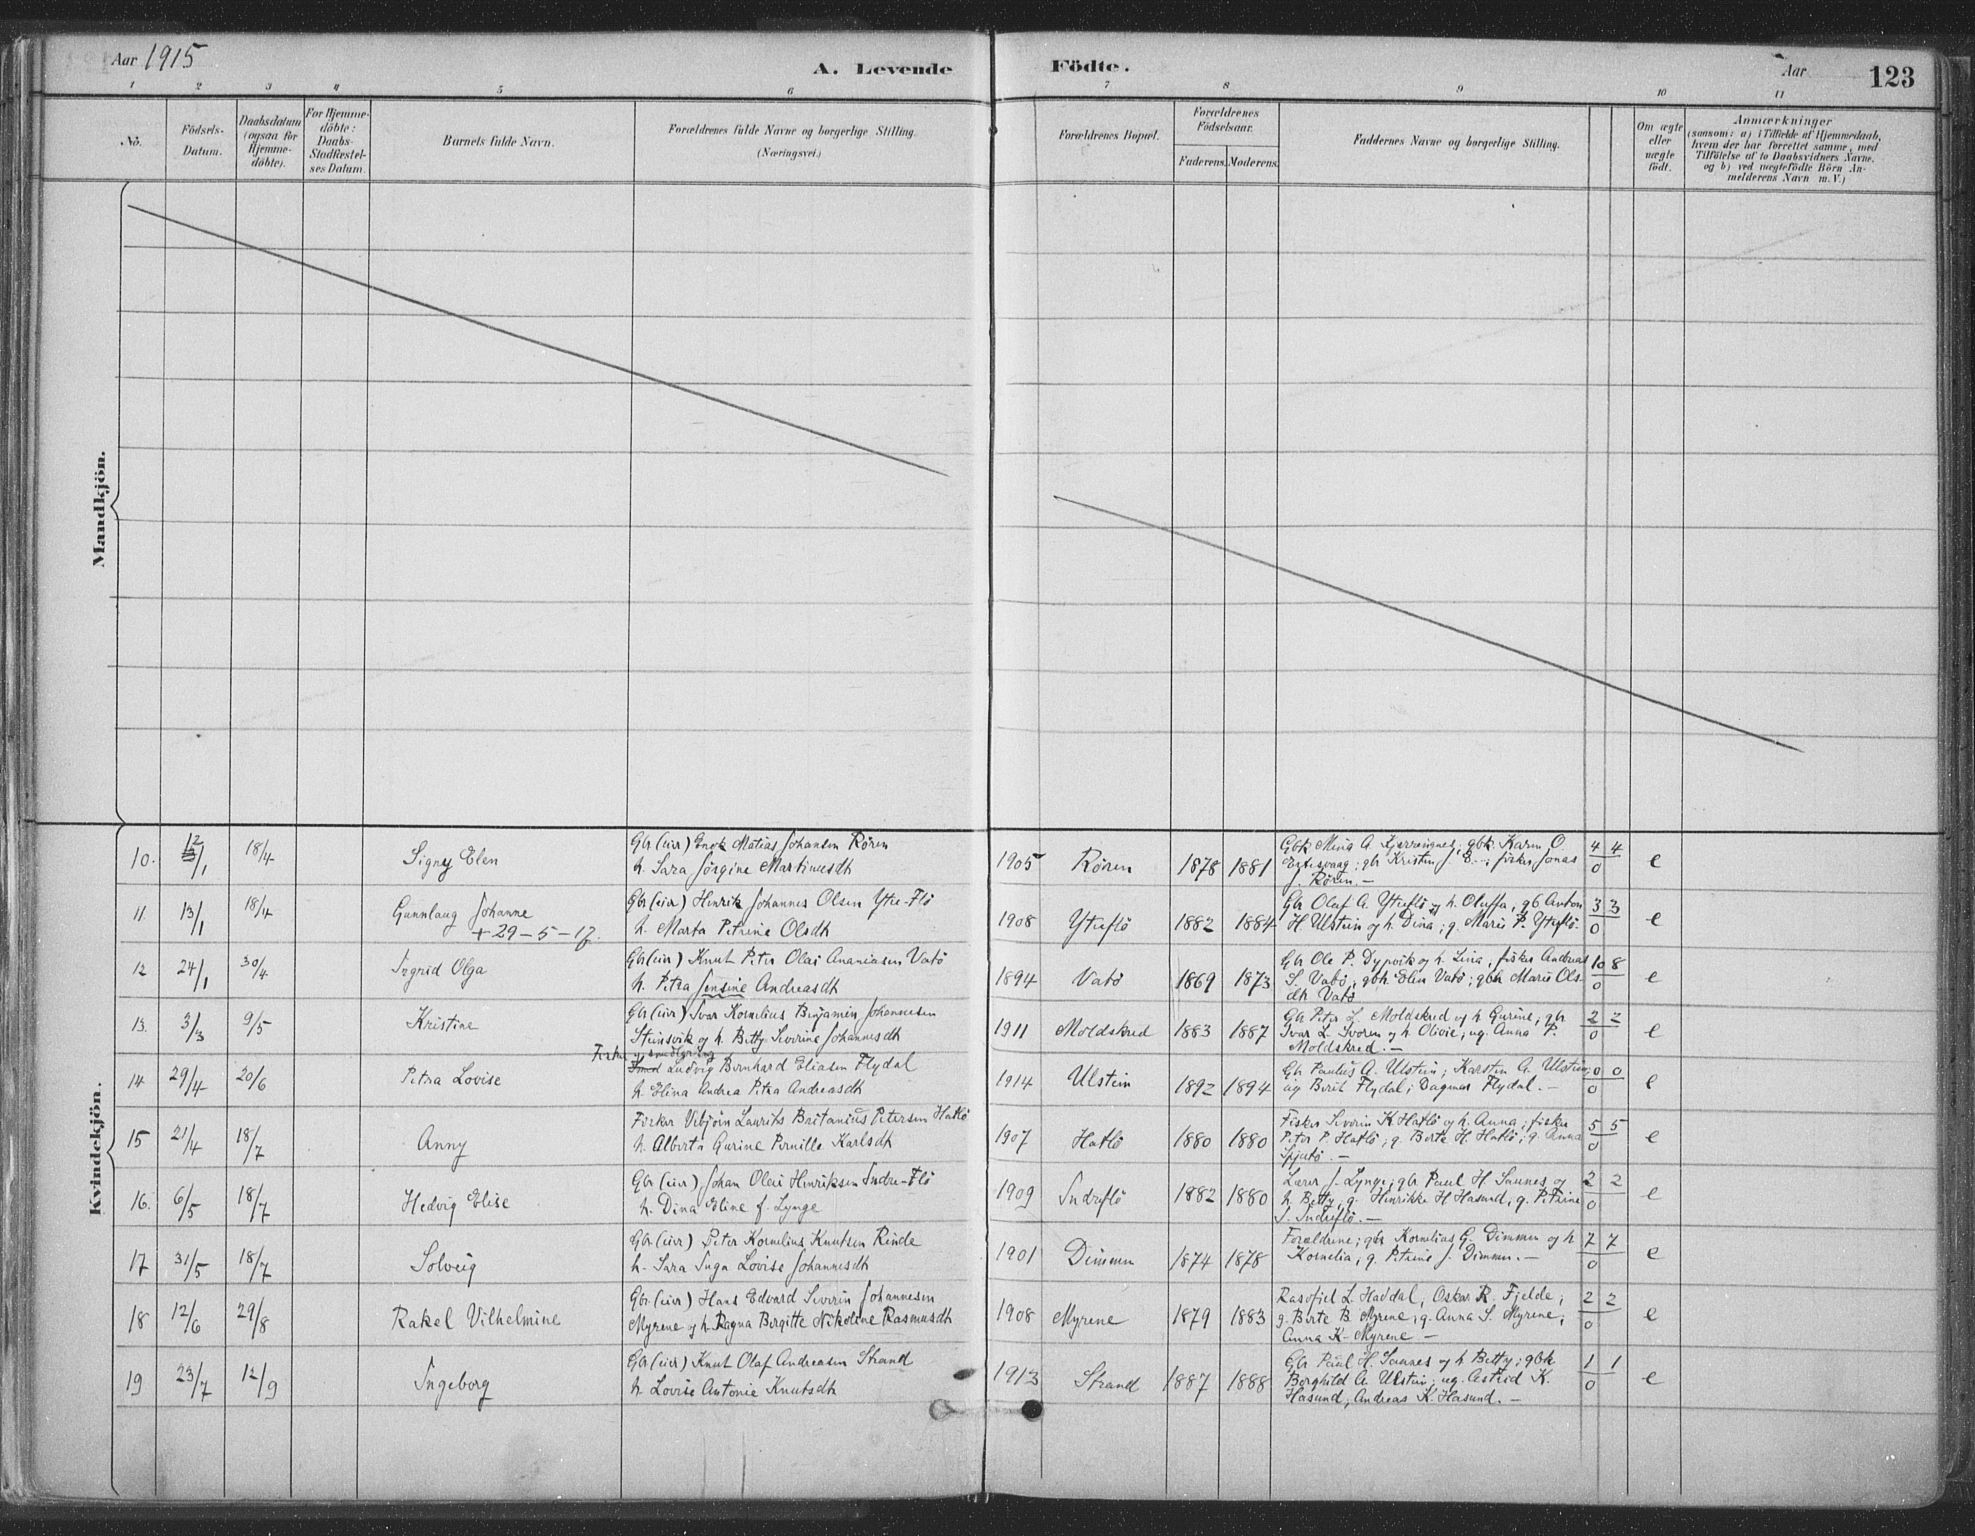 Aar 1915
A. Levende Födte.
Aar 123
1 2 3 4 5 6 7 8 9 10 11
No.
Födsels-Datum.
Daabsdatum (ogsaa for Hjemme-döbte).
For Hjemme-döbte: Daabs-Stadfæstel-ses Datum.
Barnets fulde Navn.
Forældrenes fulde Navne og borgerlige Stilling.
(Næringsvei.)
Forældrenes Bopæl.
Forældrenes Födselsaar.
Faderens. Moderens.
Faddernes Navne og borgerlige Stilling.
Om ægte eller uægte födt.
Anmærkninger
(saasom: a) i Tilfælde af Hjemmedaab,
hvem der har forrettet samme, med
Tilföielse af to Daabsvidners Navne,
og b) ved uægtefödte Börn An-
melderens Navn m. V.)
Mandkjön.
Kvindekjön.
10. 12/1 18/4 Signy Elen
Gbr (eier) Enok Matias Johansen Rören
h. Sara Jörgine Martinusdt
1905 Rören 1878 1881
Gbk Mina A. ; gbk. Karen O.
; gbr Kristen J. E--; fisker Jonas
J. Rören. —
4 4 0 e
11. 13/1 18/4 Gunnlaug Johanne
+ 29-5-17.
Gbr (eier) Henrik Johannes Olsen Ytre-Flö
h. Marta Petrine Olsdt
1908 Yteflö 1882 1884
Gbr Olaf A. Yteflö og h. Oluffa, gb Anton
H. Ulstein og h. Dina; g. Marie P. Yteflö.
3 3 0 e
12 24/1 30/4 Ingrid Olga
Gbr (eier) Knut Peter Olai Ananiasen Vatö
h. Petra Jensine Andreasdt
1894 Vatö 1869 1873
Gbr Ole P. Dypvik og h. Lina, fisker Andreas
S. Vatö; gbk. Elen Vatö; gbk Marie Ols-
dt Vatö
10 8 0 e
13. 3/3 9/5 Kristine
Gbr (eier) Ivar Kornelius Benjamin Johannesen
Steinsvik og h. Betty Severine Johannesdt
1911 Moldskred 1883 1887
Gbr Peter L. Moldskred og h Gurine; gbr
Ivar L. Svoren og h Olivie; ug. Anna P.
Moldskred. —
2 2 0 e
14 29/4 20/6 Petra Lovise
Fisker
Smed Ludvig Bernhard Eliasen Flydal
h. Elina Andrea Petra Andreasdt
1914 Ulstein 1892 1894
Gbr Paulus A. Ulstein; Karsten A. Ulstein;
ug Berit Flydal; Dagmar Flydal. —
0 0 0 e
15 21/4 18/7 Anny
Fisker Vebjörn Laurits Britanius Petersen Hatlö
h. Alberta Gurine Pernille Karlsdt
1907 Hatlö 1880 1880
Fisker Severin K. Hatlö og h. Anna; fisker
Peter P. Hatlö; g. Berte H. Hatlö; g. Anna
Spjutö. —
5 5 0 e
16. 6/5 18/7 Hedvig Elise
Gbr (eier) Johan Olai Henriksen Indre-Flö
h. Dina Eline f. Lynge
1909 Indreflö 1882 1880
Lærer J. Lynge; gbr Paul H. Saunes og
h. Betty, g. Henrikke H Hasund, g. Petrine
J. Indreflö. —
2 2 0 e
17 31/5 18/7 Solveig
Gbr (eier) Peter Kornelius Knutsen Rinde
h. Sara Inga Lovise Johannesdt
1901 Dimmen 1874 1878
Forældrene; gbr Kornelius G. Dimmen og h
Kornelia; g. Petrine J. Dimmen. —
7 7 0 e
18 12/6 29/8 Rakel Vilhelmine
Gbr (eier) Hans Edvard Severin Johannesen
Myrene og h. Ragna Bergitte Nikoline Rasmusdt
1908 Myrene 1879 1883
L. Haddal, Oskar R. Fjelde;
g. Berte B. Myrene; g. Anna S. Myrene;
Anna K. Myrene —
2 2 0 e
19 23/7 12/9 Ingeborg
Gbr (eier) Knut Olaf Andreasen Strand
h. Lovise Antonie Knutsdt
1913 Strand 1887 1888
Gbr Paul H. Saunes og h Betty; gbk
Borghild A. Ulstein; ug. Astrid K.
Hasund; Andreas K. Hasund. —
1 1 0 e